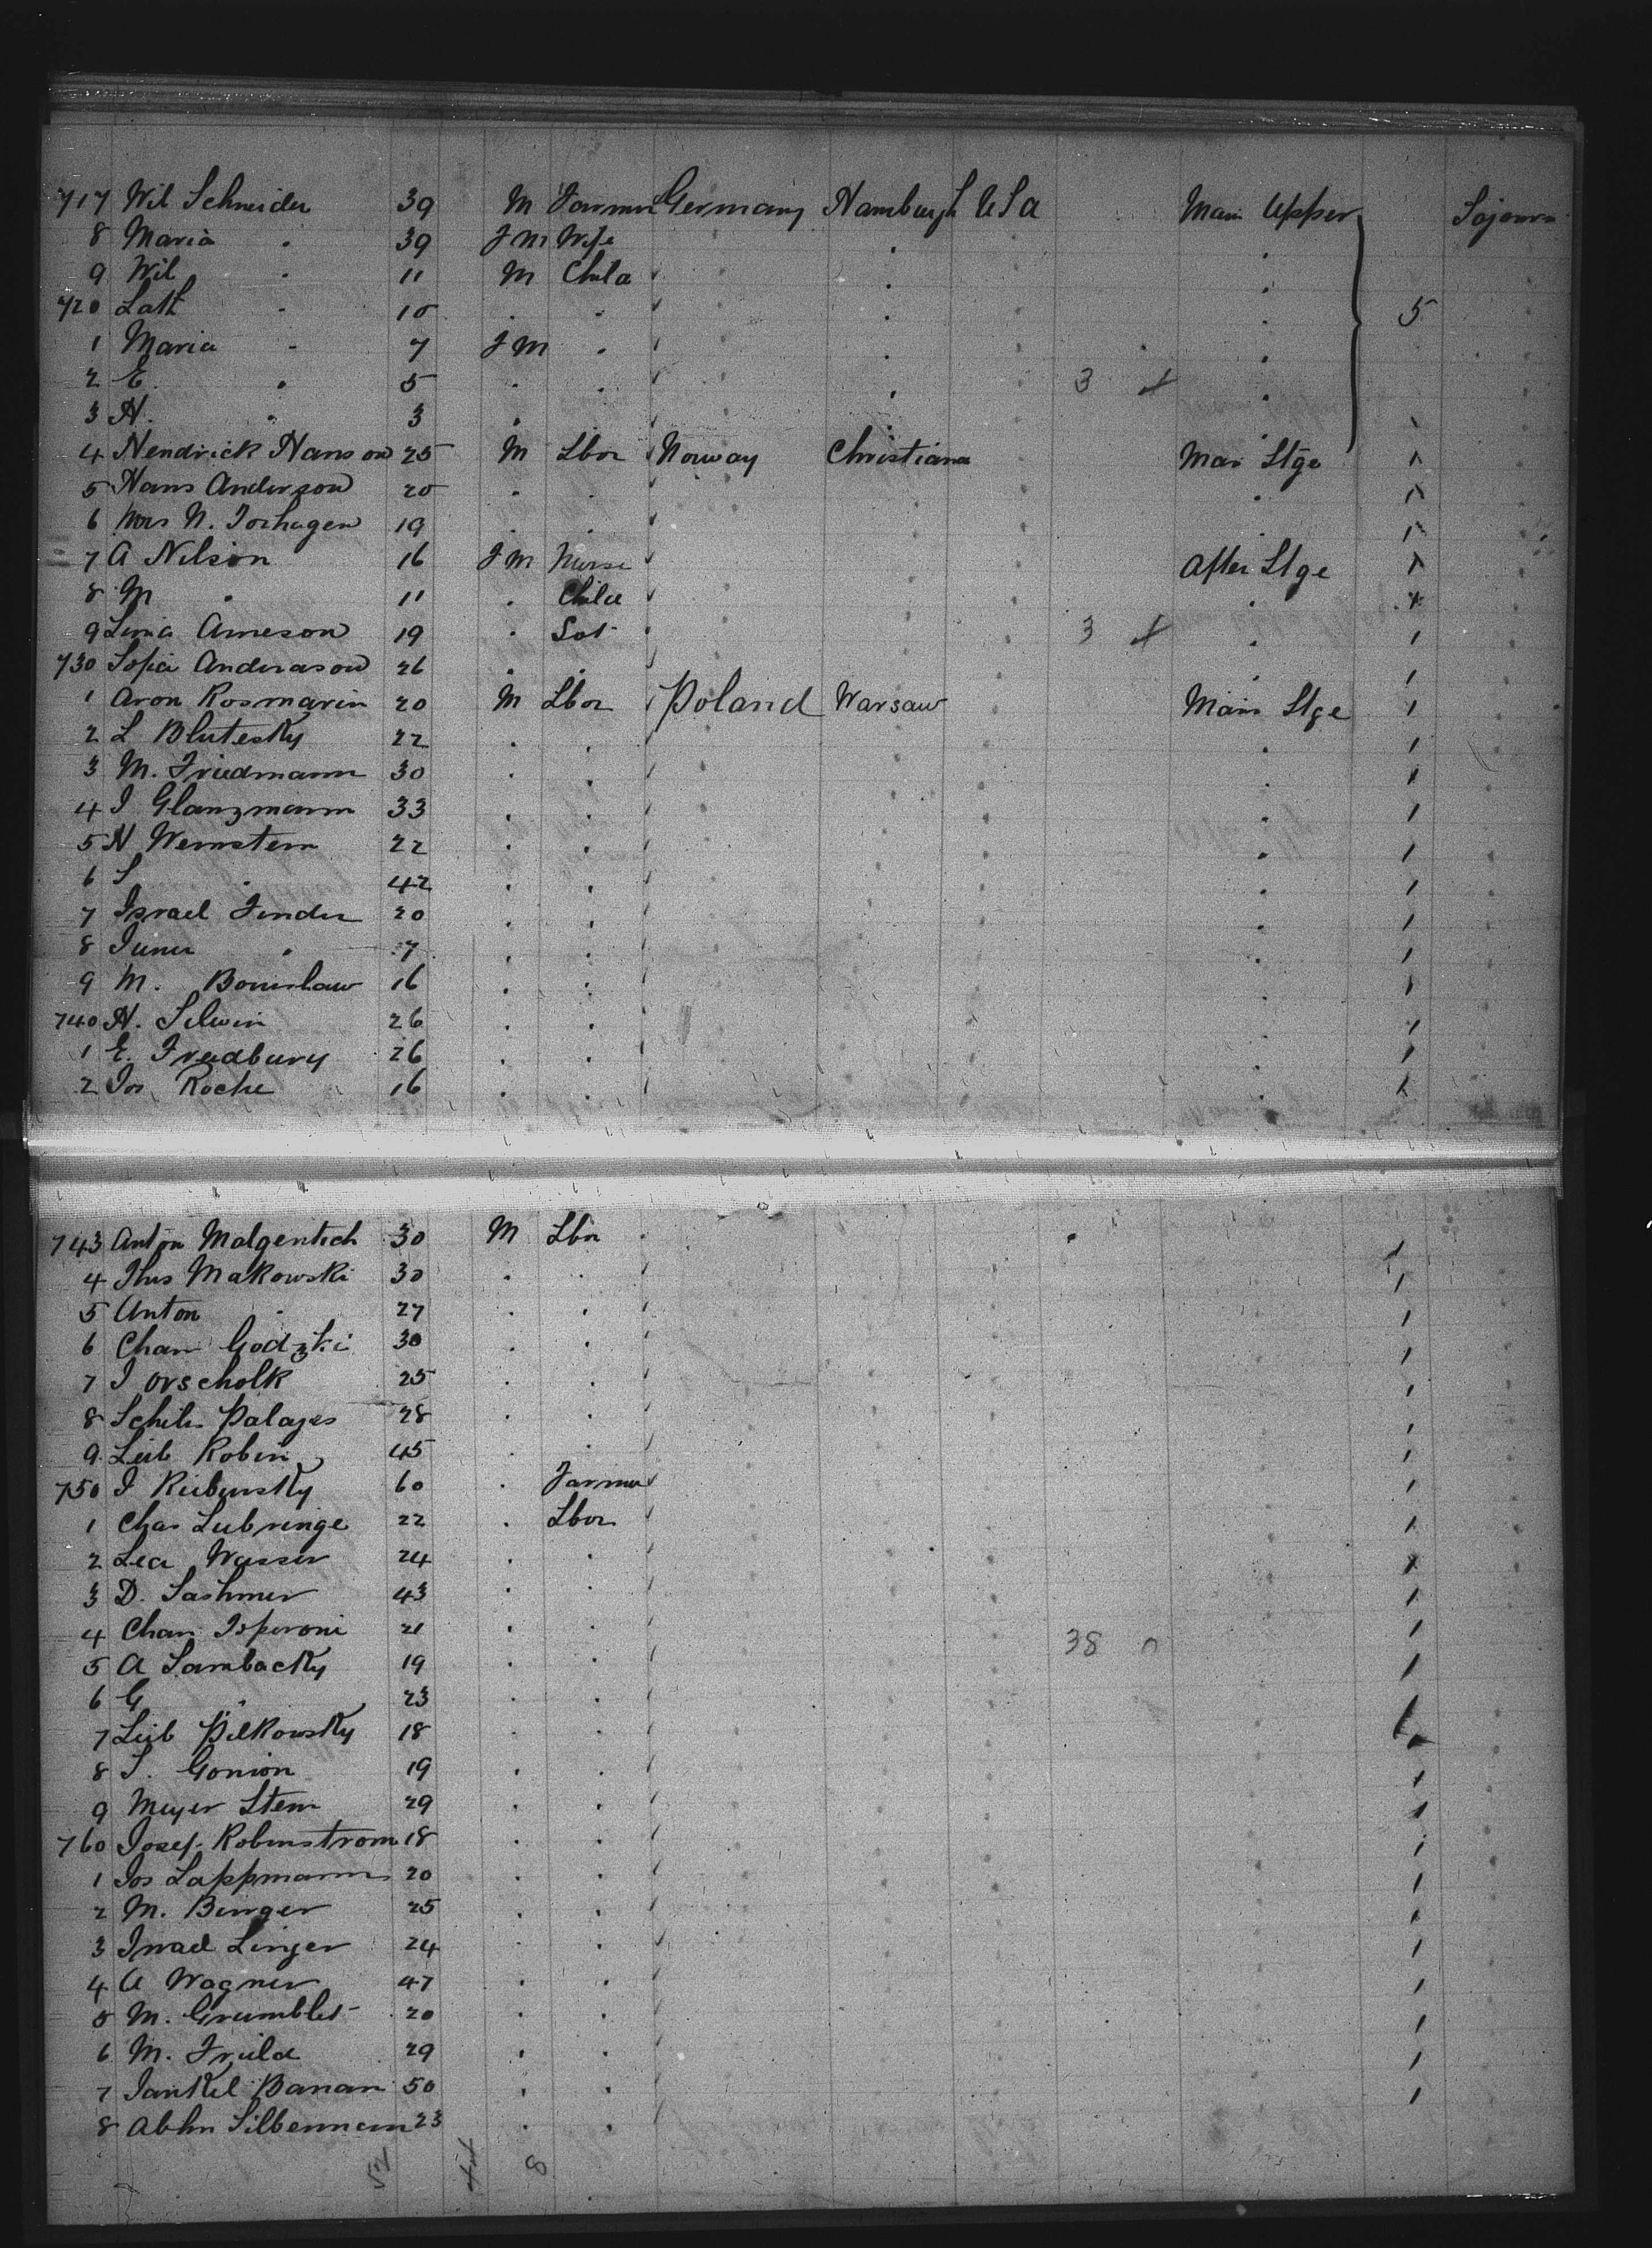 717 Wil Schneider 39 M Farmer Germany Hamburgh U S a Main Upper Sojourn
8 Maria " 39 F M Wife "
9 Wil " 11 M Child "
720 " 10 " " "
1 Maria " 7 F M " "
2 E. " 5 " " " 3 +
3 H. " 3 " 5
4 Hendrick Hanson 25 M Lbor Norway Christiana Main Stge 1
5 Hans Anderson 20 " " " 1
6 N. 19 " " " 1
7 A Nelson 16 F M Nurse After Stge 1
8 M " 11 " Child " 1
9 Lina Arneson 19 " 3 + " 1
730 Sofia Anderason 26 " " " 1
1 Aron Rosmarin 20 M Lbor Poland Warsaw Main Stge 1
2 L Blutesky 22 " " " 1
3 M. Friedmann 30 " " " 1
4 I Glanzmann 33 " " " 1
5 H Wernstern 22 " " " 1
6 S " 42 " " " 1
7 Israel Fender 20 " " " 1
8 " 7 " " " 1
9 M. 16 " " " 1
740 H. Selwin 26 " " " 1
1 E. Freedbury 26 " " " 1
2 Jos Roche 16 " " " 1
743 Anton Malgentich 30 M Lbor 1
4 Makowski 30 " " 1
5 Anton " 27 " " 1
6 Chan Godzki 30 " " 1
7 I Orscholk 25 " " 1
8 Palages 28 " " 1
9 Leib Robin 45 " " 1
750 I 60 " Farmer 1
1 Chas Lubringe 22 " Lbor 1
2 Lea Wasser 24 " " 1
3 D. Lashmer 43 " " 1
4 Chan Isperoni 21 " " 38 0 1
5 A Lambacky 19 " " 1
6 G " 23 " " 1
7 Leib Pilkowsky 18 " " 1
8 Gonion 19 " " 1
9 Meyer Stern 29 " " 1
760 Josef Robinstrom 18 " " 1
1 Jos Lappmann 20 " " 1
2 M. Binger 25 " " 1
3 Israel Linger 24 " " 1
4 A Wagner 47 " " 1
5 M. Grumblet 20 " " 1
6 M. Frield 29 " " 1
7 Jankel Banan 50 " " 1
8 Abhn Silbermann 23 " "
8